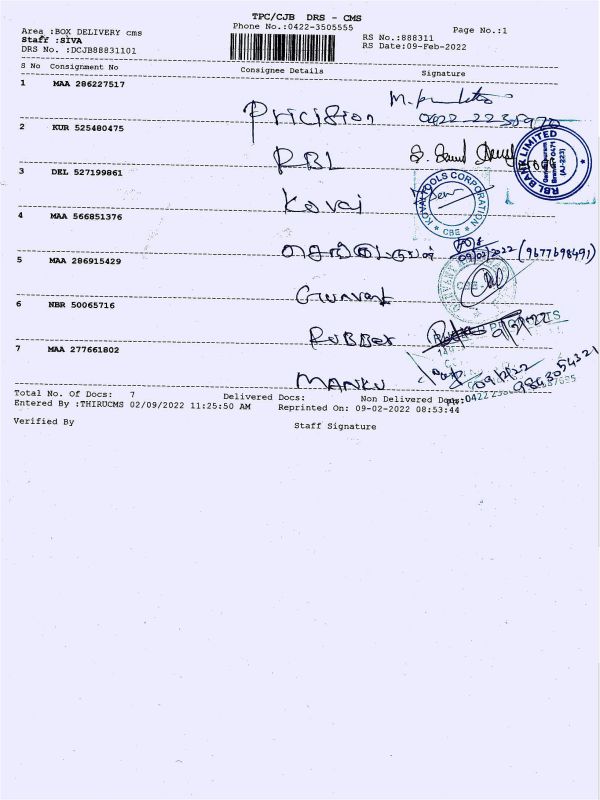 TPC/CJB DRS - CMS
Area :BOX DELIVERY cms
Phone No.:0422-3505555
Page No.:1
Staff :SIVA
RS No.:888311
DRS No. :DCJB88831101
RS Date:09-Feb-2022
S No Consignment No Consignee Details Signature
1 MAA 286227517
Pricision
0422 2235970
2 KUR 525480475
RBL
RBL BANK LIMITED
(AJ-223)
3 DEL 527199861
Kovai
KOVAI TOOLS CORPORATION
* CBE *
4 MAA 566851376
09/02/2022 (9677698491)
5 MAA 286915429
Gunvant
6 NBR 50065716
RUBBER
7 MAA 277661802
MANKU
09/2/22
9843054321
Total No. Of Docs: 7 Delivered Docs: Non Delivered Docs:
Entered By :THIRUCMS 02/09/2022 11:25:50 AM Reprinted On: 09-02-2022 08:53:44
Verified By Staff Signature